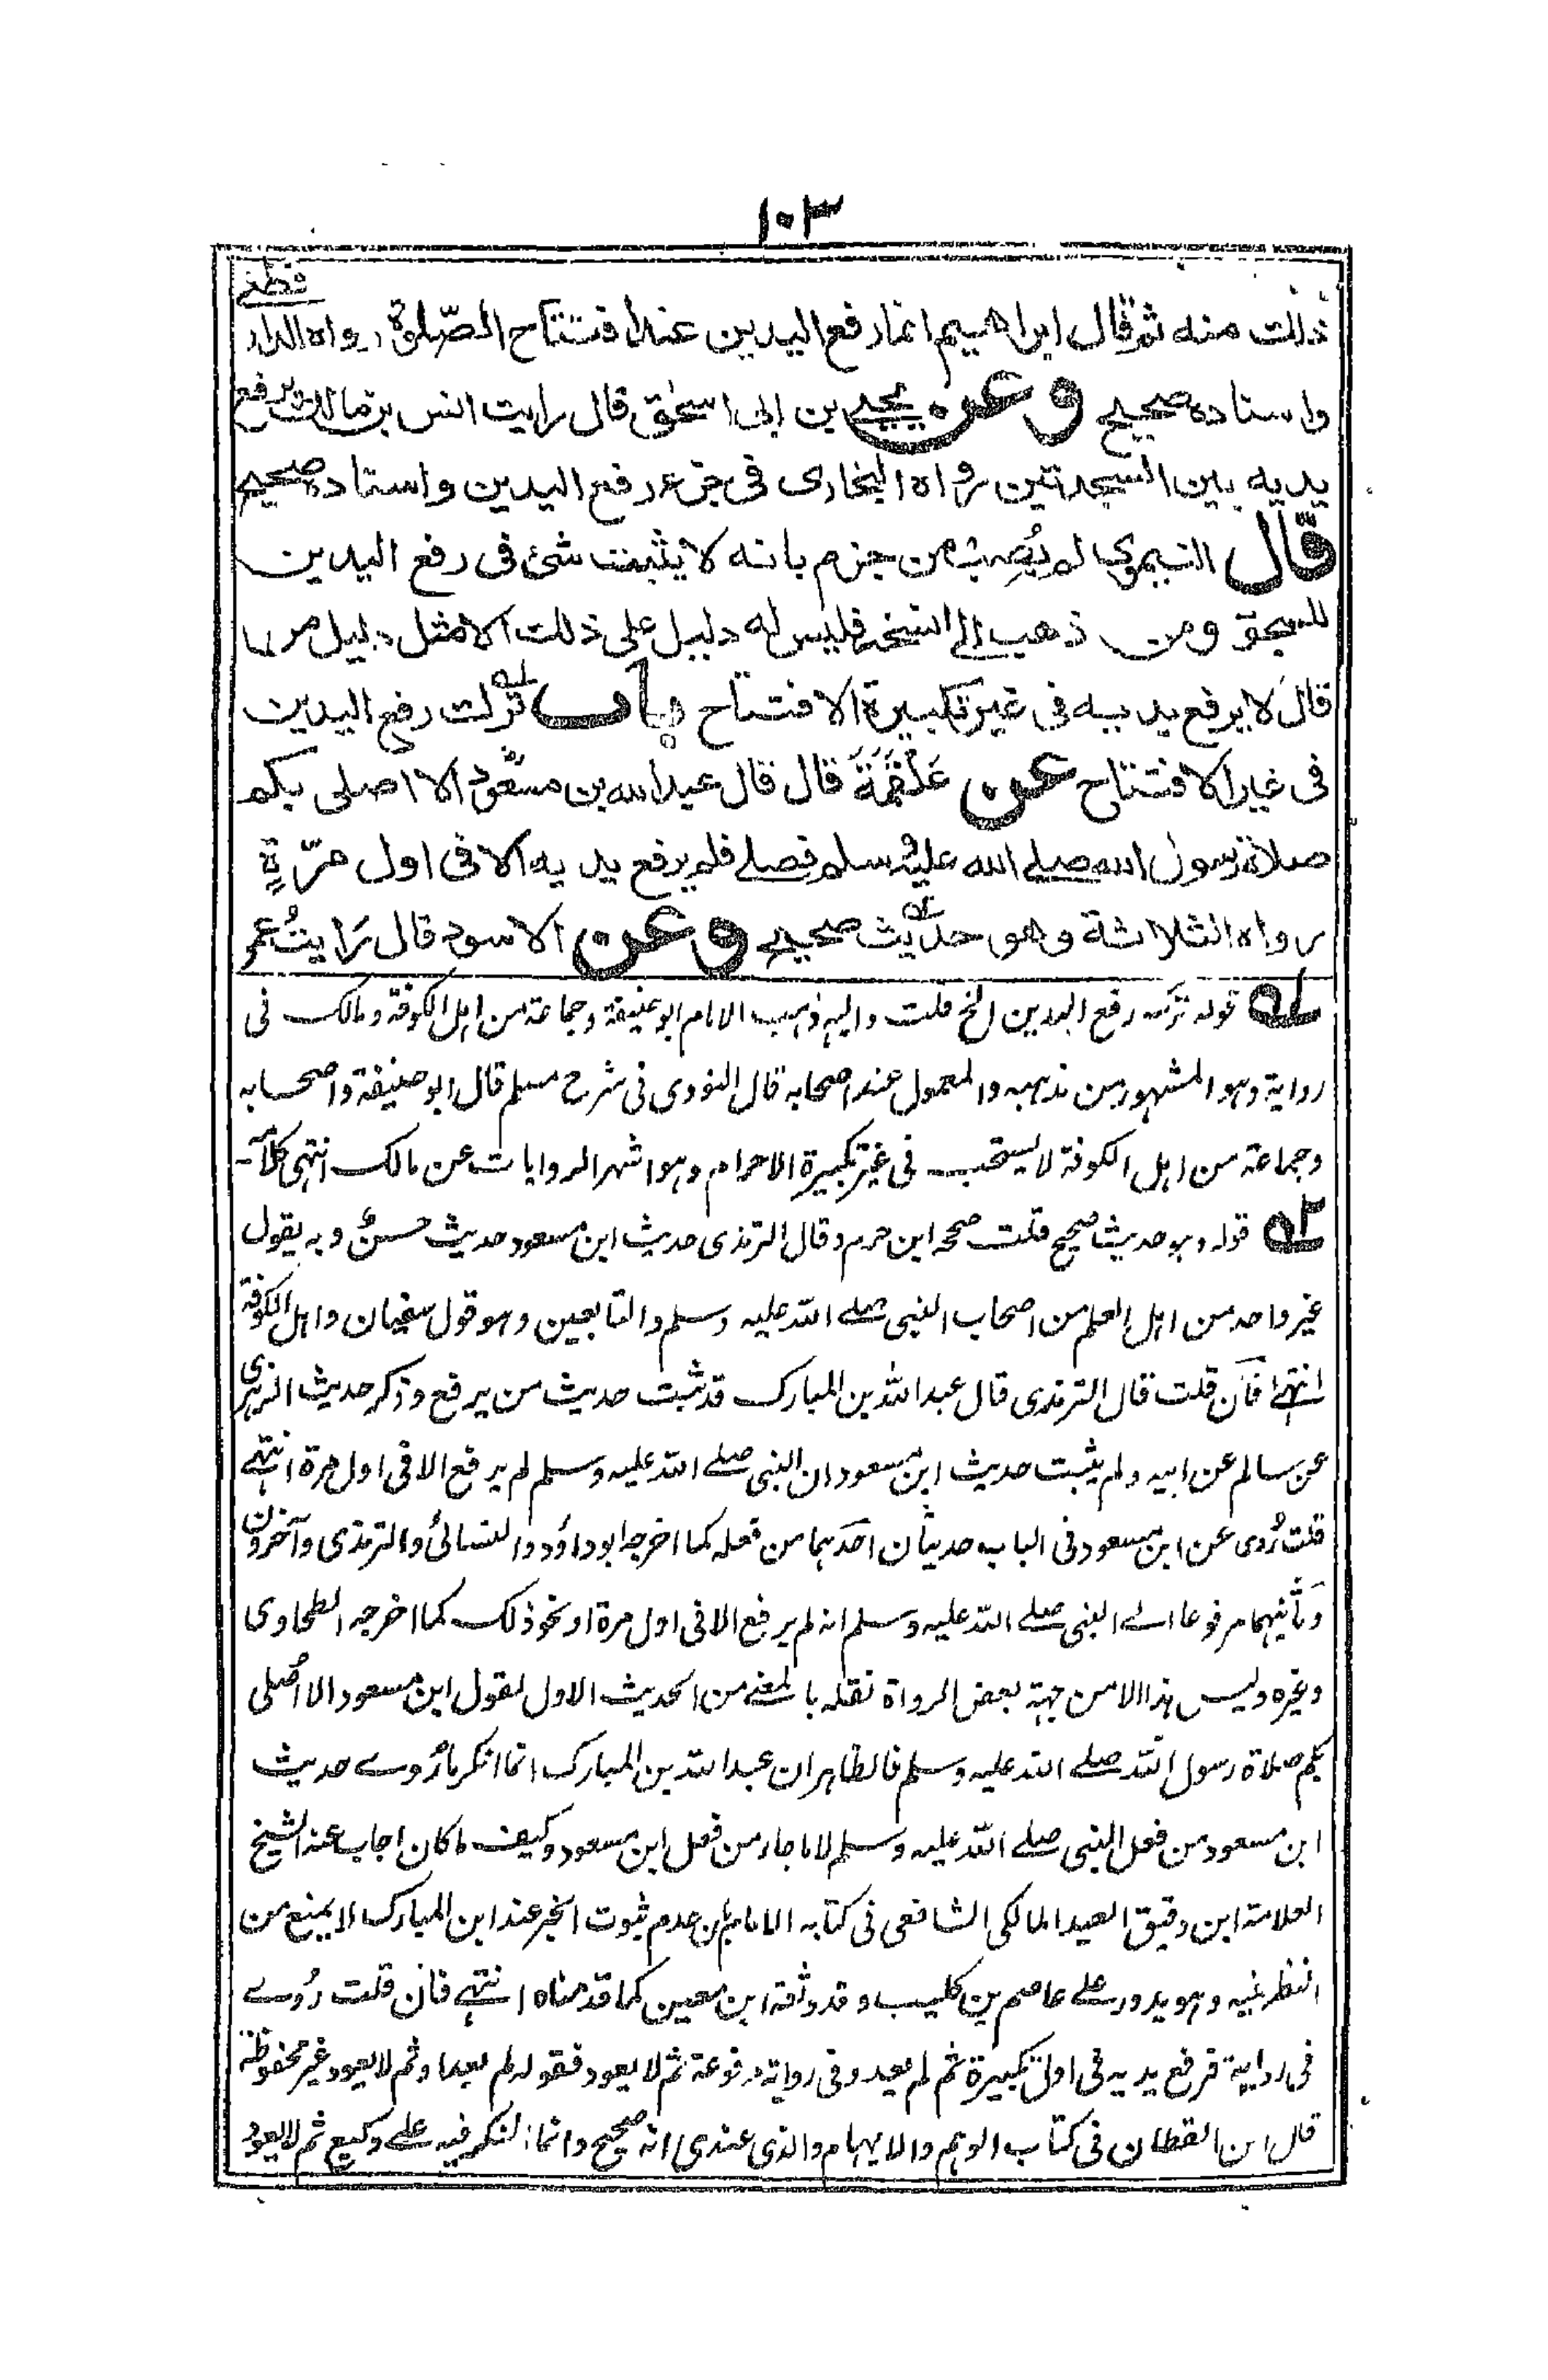 ١٠٣
ذلك منه ثم قال ابراهيم انما رفع اليدين عند افتتاح الصّلوة رواه الدارقطنى
واسناده صحيح وعن يحيى بن ابى اسحٰق قال رايت انس بن مالك يرفع
يديه بين السجدتين رواه البخارى فى جزء رفع اليدين واسناده صحيح
قال النيموى لم يُصِب من جزم بانه لا يثبت شئ فى رفع اليدين
للسجود ومن ذهب الى النسخ فليس له دليل على ذلك الا مثل دليل من
قال لا يرفع يديه فى غير تكبيرة الافتتاح باب ترك رفع اليدين
فى غير الافتتاح عن عَلْقَمَةَ قال قال عبد الله بن مسعود الا اصلى بكم
صلاة رسول الله صلى الله عليه وسلم فصلى فلم يرفع يديه الا فى اول مرّةٍ
رواه الثلاثة وهو حديث صحيح وعن الاسود قال رَايتُ عمر
١ه قوله ترك رفع اليدين الخ قلت واليه ذهب الامام ابو حنيفة وجماعة من اهل الكوفة ومالك فى
رواية وهو المشهور من مذهبه والمعمول عند اصحابه قال النووى فى شرح مسلم قال ابو حنيفة واصحابه
وجماعة من اهل الكوفة لا يستحب فى غير تكبيرة الاحرام وهو اشهر الروايات عن مالك انتهى كلامه
٢ه قوله وهو حديث صحيح قلت صححه ابن حزم وقال الترمذى حديث ابن مسعود حديث حسنٌ وبه يقول
غير واحد من اهل العلم من اصحاب النبى صلى الله عليه وسلم والتابعين وهو قول سفيان واهل الكوفة
انتهى فان قلت قال الترمذى قال عبد الله بن المبارك قد ثبت حديث من يرفع وذكر حديث الزهرى
عن سالم عن ابيه ولم يثبت حديث ابن مسعود ان النبى صلى الله عليه وسلم لم يرفع الا فى اول مرة انتهى
قلت رُوى عن ابن مسعود فى الباب حديثان احدهما من فعله كما اخرجه ابو داؤد والنسائى والترمذى وآخرون
وثانيهما مرفوعا الى النبى صلى الله عليه وسلم انه لم يرفع الا فى اول مرة او نحو ذلك كما اخرجه الطحاوى
وغيره وليس هذا الا من جهة بعض الرواة نقله بالمعنى من الحديث الاول لقول ابن مسعود الا اُصلى
بكم صلاة رسول الله صلى الله عليه وسلم فالظاهر ان عبد الله بن المبارك انما انكر ما رُوى حديث
ابن مسعود من فعل النبى صلى الله عليه وسلم لا ما جاء من فعل ابن مسعود وكيف ما كان اجاب عنه الشيخ
العلامة ابن دقيق العيد المالكى الشافعى فى كتابه الامام بان عدم ثبوت الخبر عند ابن المبارك لا يمنع من
النظر فيه وهو يدور على عاصم بن كليب وقد وثقه ابن معين كما قدمناه انتهى فان قلت رُوى
فى رواية فرفع يديه فى اول تكبيرة ثم لم يعد وفى رواية مرفوعة ثم لا يعود فقوله لم يعد او ثم لا يعود غير محفوظة
قال ابن القطان فى كتاب الوهم والايهام والذى عندى انه صحيح وانما النكر فيه على وكيع ثم لا يعود